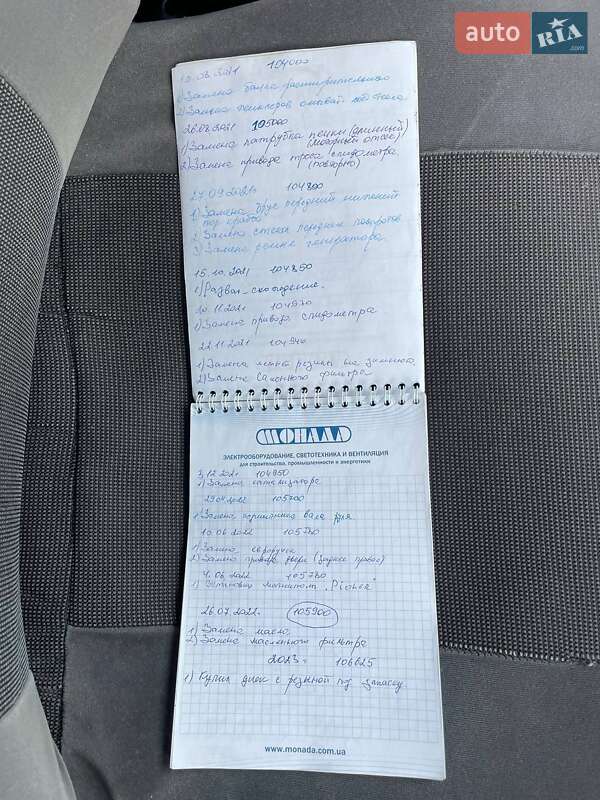 auto RIA.com
13.08.2021 104000
1) Замена бачка расширительного
2)
26.08.2021 105000
1) Замена патрубка печки (длинный)
(моторный отсек)
2) Замена привода троса спидометра
(повторно)
27.09.2021 104800
1) Замена брус передний нижний
под
2) Замена стекла передних поворотов
3) Замена ремня генератора
15.10.2021 104850
1) Развал-схождение.
20.11.2021 104930
1) Замена привода спидометра
22.11.2021 104940
1) Замена резины на зимнюю.
2) Замена салонного фильтра
МОНАДА
ЭЛЕКТРООБОРУДОВАНИЕ, СВЕТОТЕХНИКА И ВЕНТИЛЯЦИЯ
для строительства, промышленности и энергетики
3.12.2021 104950
1) Замена катализатора
29.04.2022 105700
1) Замена вала руля
10.06.2022 105780
1) Замена
2) Замена привода двери (заднее правое)
4.06.2022 105780
1) Установка магнитолы "Pioner"
26.07.2022 105900
1) Замена масла
2) Замена масленного фильтра
2023г 106625
1) Купил диск с резиной под запаску
www.monada.com.ua